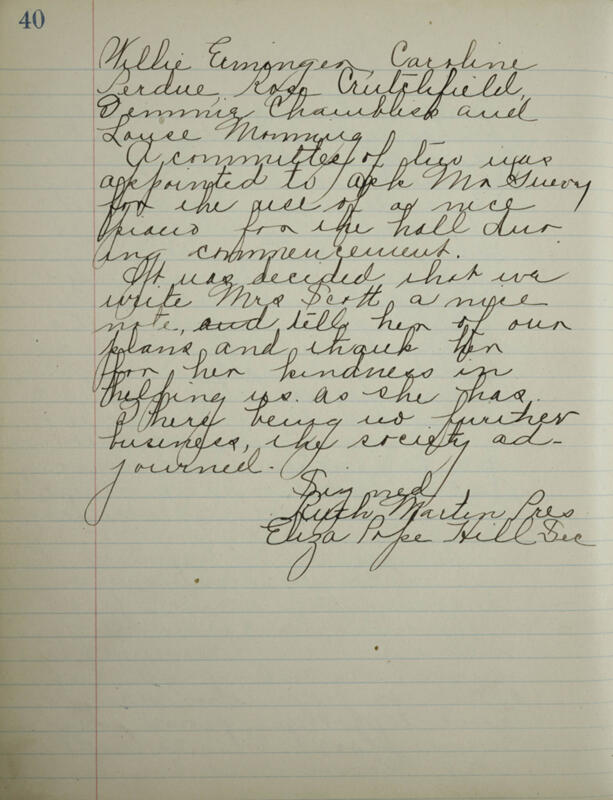 40
Willie Erminger, Caroline
Perdue, Rose Crutchfield,
Demmie Chambliss and
Louse
A committee of two was
appointed to ask Mr Guerry
for the use of a nice
piano for the hall dur
ing commencement.
It was decided that we
write Mrs Scott a nice
note, and tell her of our
plans and thank her
for her kindness in
helping us as she has.
There being no further
business, the society ad-
journed.
Signed
Ruth Martin Pres
Eliza Pope Hill Sec